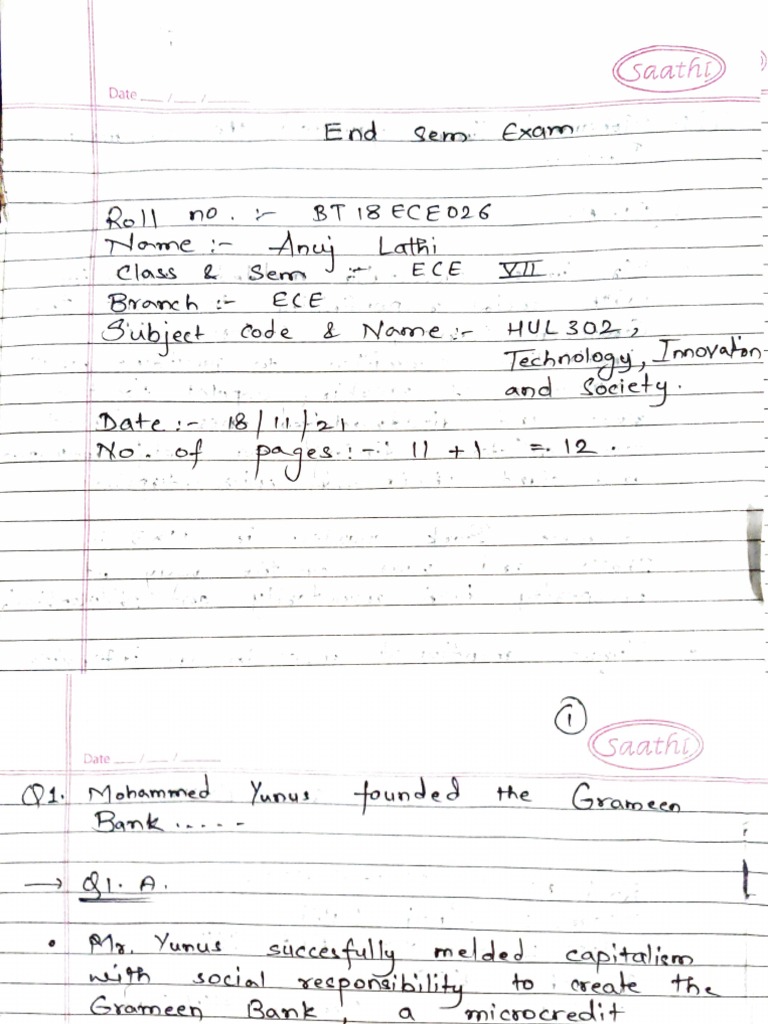 saathi
Date __/__/____
End Sem Exam
Roll no. :- BT18ECE026
Name :- Anuj Lathi
Class & Sem :- ECE VII
Branch :- ECE
Subject code & Name :- HUL302,
Technology, Innovation
and Society.
Date :- 18/11/21
No. of pages :- 11 + 1 = 12.
1
saathi
Date __/__/____
Q1. Mohammed Yunus founded the Grameen
Bank.....
→ Q1. A.
• Mr. Yunus succesfully melded capitalism
with social responsibility to create the
Grameen Bank, a microcredit